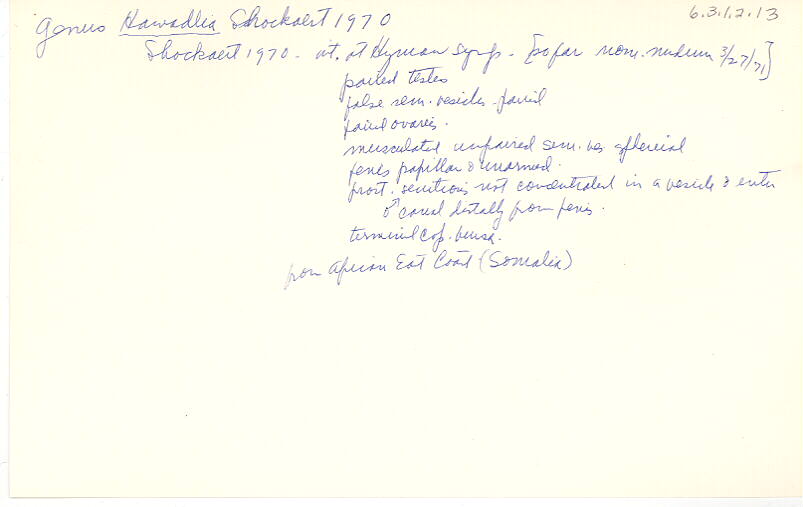 6.3.1.2.13
Genus Hawadlia Shockaert 1970
Shockaert 1970 - cit. at Hyman symp. - [so far nom. nudum 3/27/71]
paired testes
false sem. vesicles - paired
paired ovaries.
musculated unpaired sem. ves. spherical
penis papilla & unarmed.
prost. secretions not concentrated in a vesicle & enter
♂ canal distally from penis.
terminal cop. bursa.
from African East Coast (Somalia)